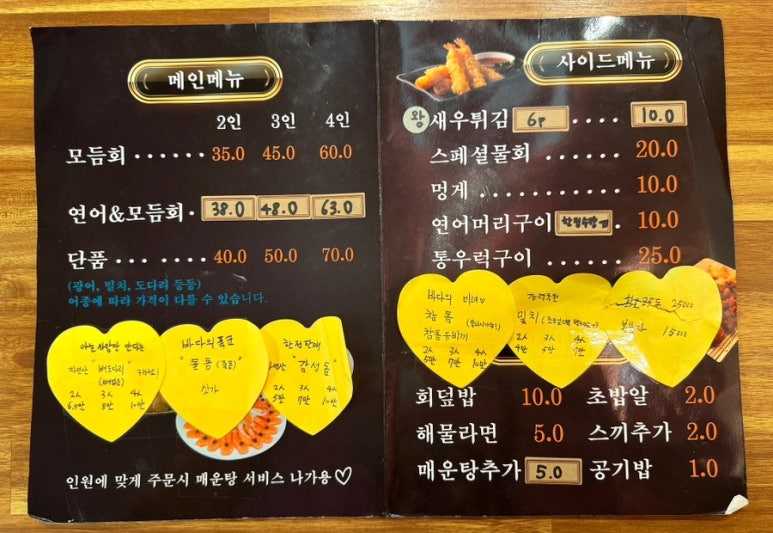 메인메뉴
2인 3인 4인
모듬회 ...... 35.0 45.0 60.0
연어&모듬회. 38.0 48.0 63.0
단품 ...... 40.0 50.0 70.0
(광어, 밀치, 도다리 등등)
어종에 따라 가격이 다를 수 있습니다.
아는 사람만 안다는
자연산
2人 3人 4人
8만 10만
바다의
"돌돔
싯가
한정판매
"감성돔"
2人 3人 4人
5만 7만 10만
인원에 맞게 주문시 매운탕 서비스 나가용♡
사이드메뉴
왕 새우튀김 6P .... 10.0
스페셜물회 ...... 20.0
멍게 ........... 10.0
연어머리구이 한정수량 . 10.0
통우럭구이 ...... 25.0
바다의 미녀
참돔
참돔유비끼
2人 3人 4人
5만 7만 10만
밀치
2人 3人 4人
4만 5만 7만
25000
15000
회덮밥 10.0 초밥알 2.0
해물라면 5.0 스끼추가 2.0
매운탕추가 5.0 공기밥 1.0